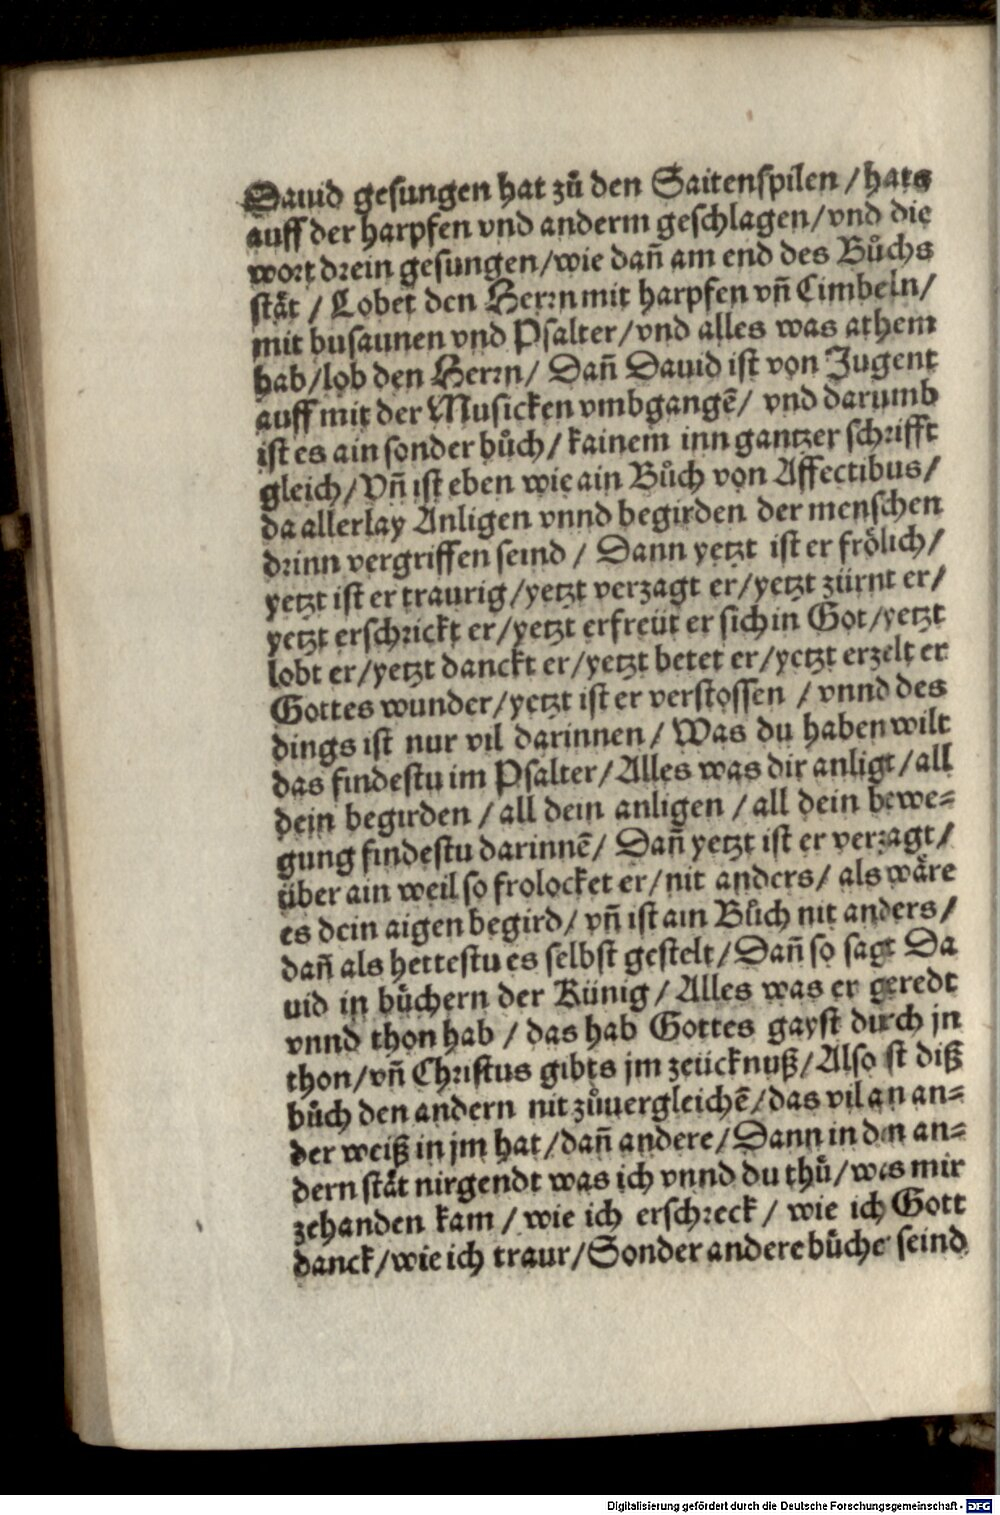 Dauid gesungen hat zů den Saitenspilen / hats
auff der harpfen vnd anderm geschlagen/vnd die
wort drein gesungen/wie dañ am end des Bůchs
stät / Lobet den Herrn mit harpfen vñ Cimbeln/
mit busaunen vnd Psalter/vnd alles was athem
hab/lob den Herrn/ Dañ Dauid ist von Jugent
auff mit der Musicken vmbgangē/ vnd darumb
ist es ain sonder bůch/ kainem inn gantzer schrifft
gleich/Vñ ist eben wie ain Bůch von Affectibus/
da allerlay Anligen vnnd begirden der menschen
drinn vergriffen seind / Dann yetzt ist er frölich/
yetzt ist er traurig/yetzt verzagt er/yetzt zürnt er/
yetzt erschrickt er/yetzt erfreüt er sich in Got/yetzt
lobt er/yetzt danckt er/yetzt betet er/yetzt erzelt er
Gottes wunder/yetzt ist er verstossen / vnnd des
dings ist nur vil darinnen/ Was du haben wilt
das findestu im Psalter/Alles was dir anligt/all
dein begirden /all dein anligen /all dein bewe=
gung findestu darinnē/ Dañ yetzt ist er verzagt/
über ain weil so frolocket er/nit anders/ als wäre
es dein aigen begird/ vñ ist ain Bůch nit anders/
dañ als hettestu es selbst gestelt/Dañ so sagt Da
uid in büchern der Künig / Alles was er geredt
vnnd thon hab / das hab Gottes gayst durch jn
thon/vñ Christus gibts jm zeücknuß/Also st diß
bůch den andern nit zůuergleichē/das vil an an=
der weiß in jm hat/dañ andere/Dann in den an=
dern stät nirgendt was ich vnnd du thů/wes mir
zehanden kam / wie ich erschreck / wie ich Gott
danck/wie ich traur/Sonder andere bůche seind
Digitalisierung gefördert durch die Deutsche Forschungsgemeinschaft - DFG